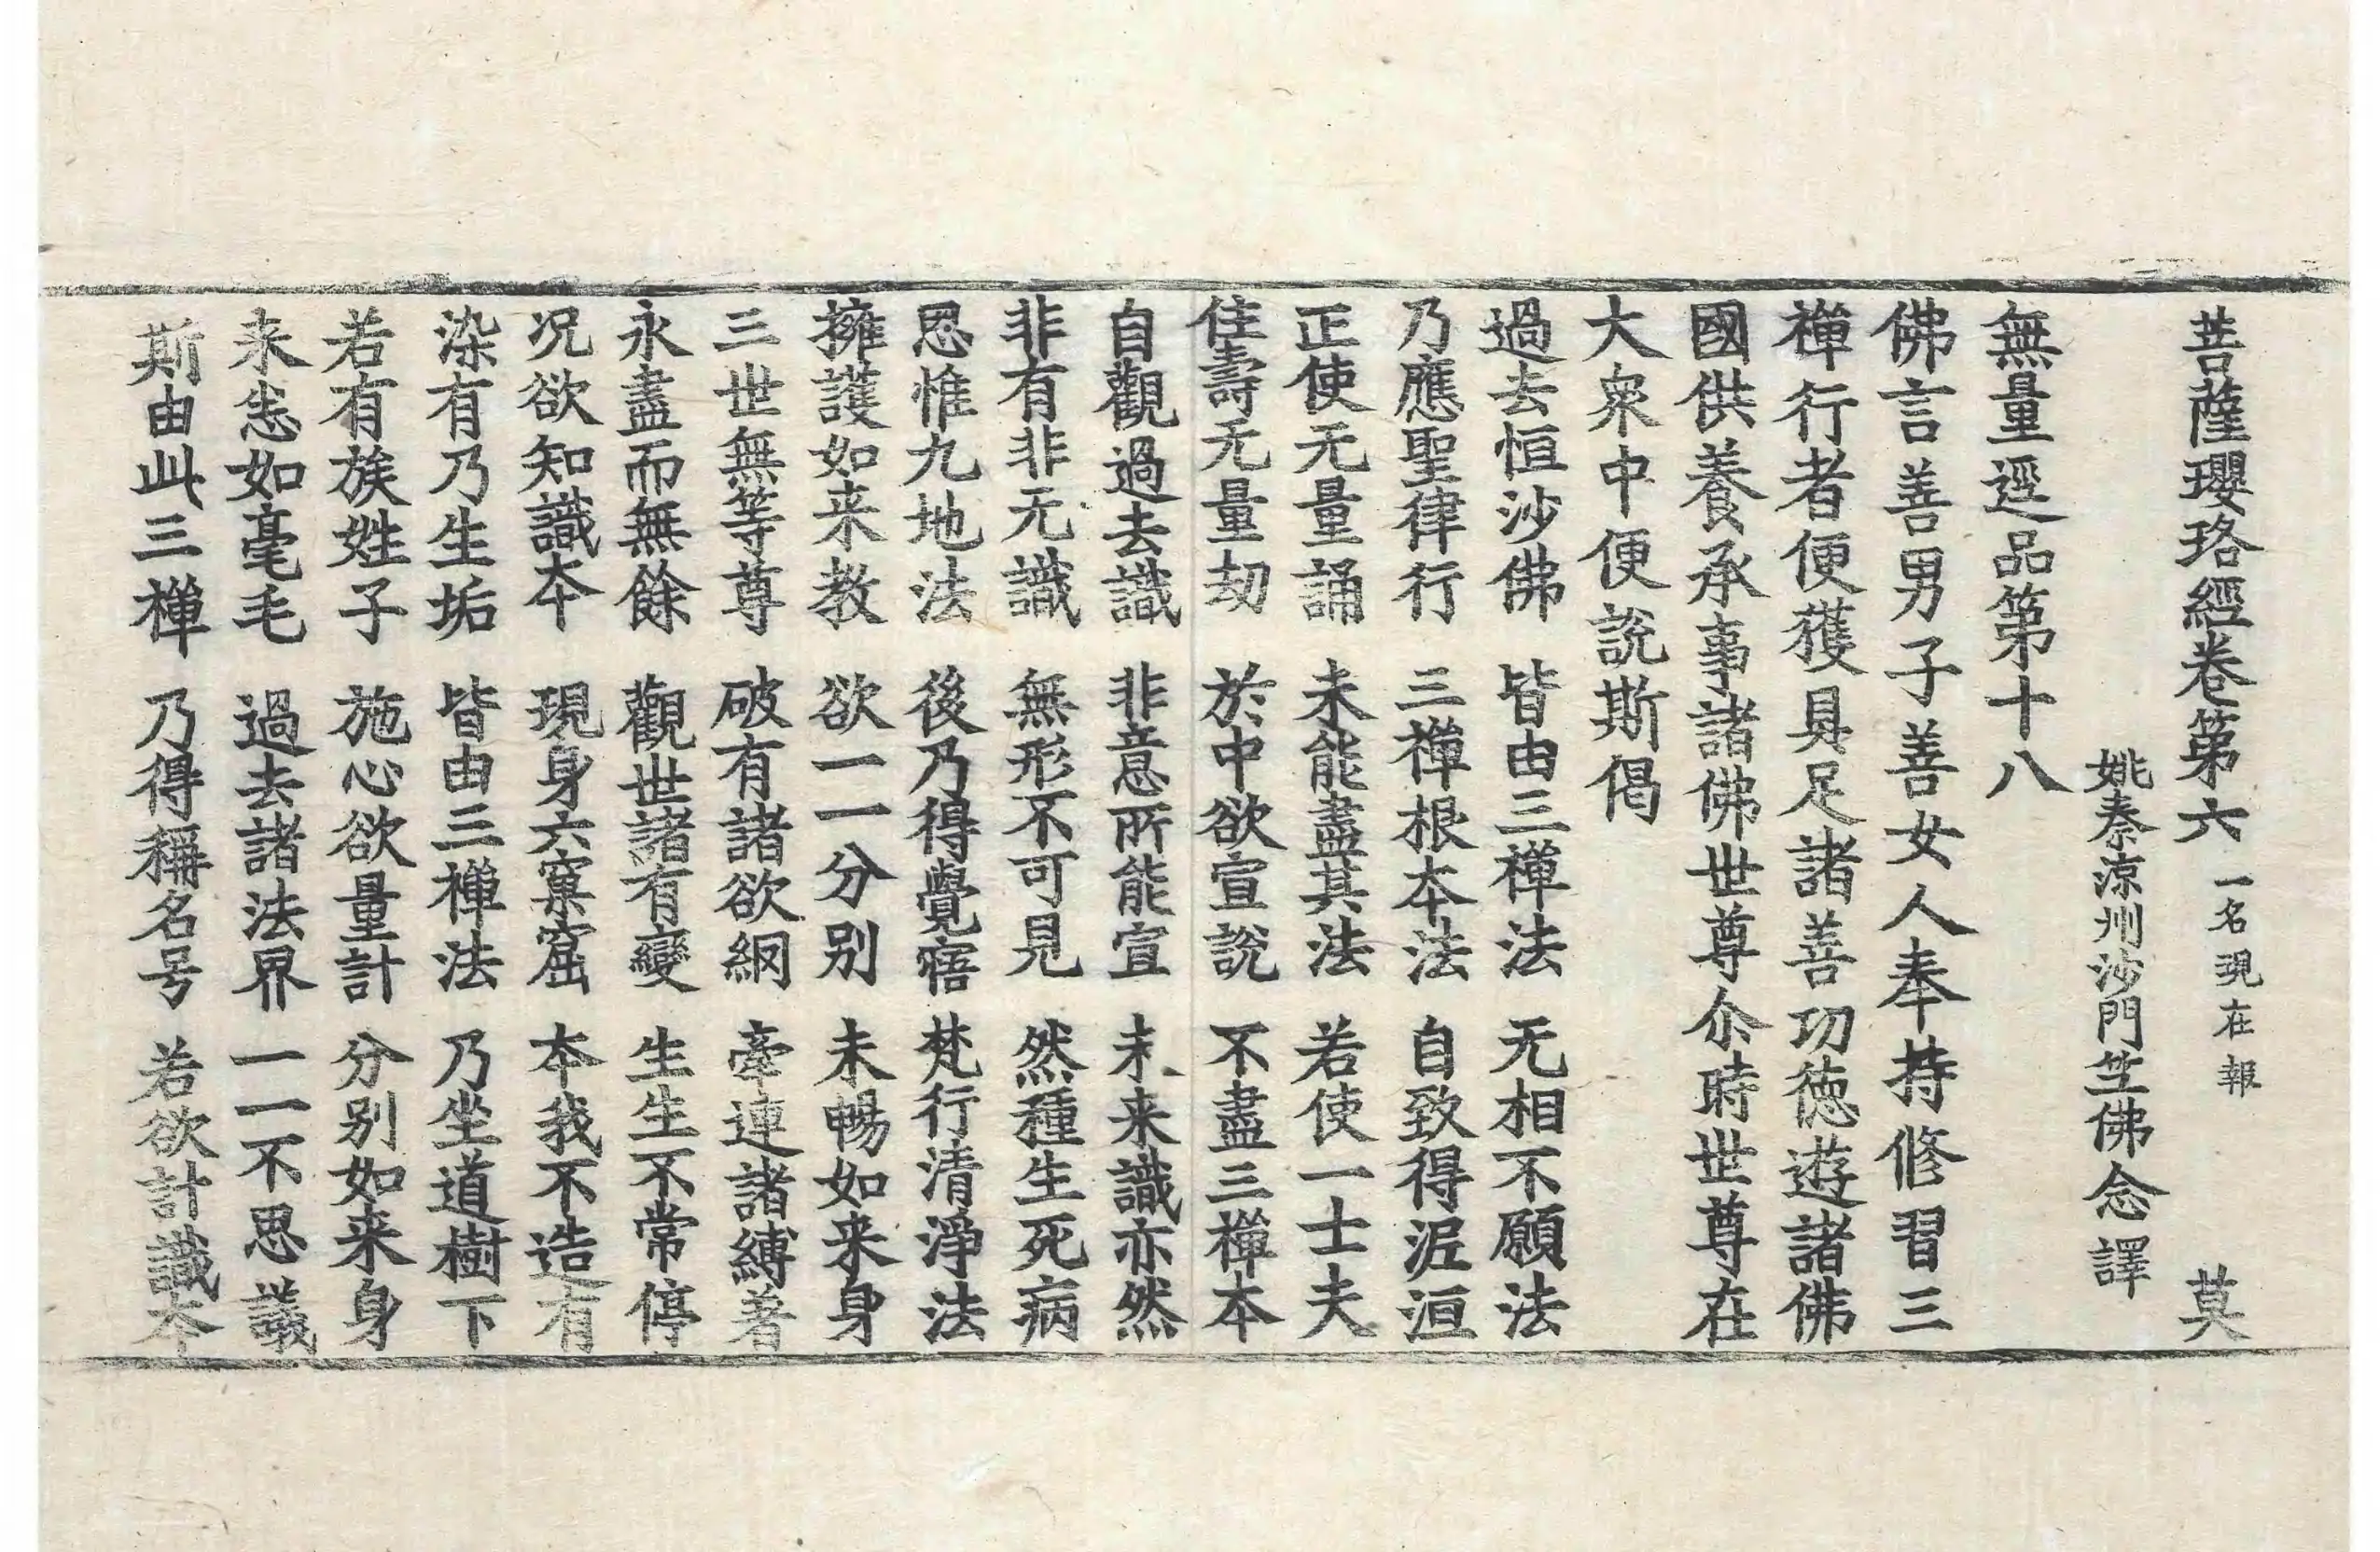 菩薩瓔珞經卷第六 一名現在報 莫
姚秦涼州沙門竺佛念譯
無量逕品第十八
佛言善男子善女人奉持修習三
禪行者便獲具足諸善功德遊諸佛
國供養承事諸佛世尊尒時世尊在
大衆中便說斯偈
過去恒沙佛 皆由三禪法 无相不願法
乃應聖律行 三禪根本法 自致得泥洹
正使无量誦 未能盡其法 若使一士夫
住壽无量劫 於中欲宣說 不盡三禪本
自觀過去識 非意所能宣 未来識亦然
非有非无識 無形不可見 然種生死病
思惟九地法 後乃得覺寤 梵行清淨法
擁護如来教 欲一一分别 未暢如来身
三世無等尊 破有諸欲網 牽連諸縛著
永盡而無餘 觀世諸有變 生生不常停
况欲知識本 現身六窠窟 本我不造有
染有乃生垢 皆由三禪法 乃坐道樹下
若有族姓子 施心欲量計 分别如来身
未悉如毫毛 過去諸法界 一一不思議
斯由此三禪 乃得稱名号 若欲計識本